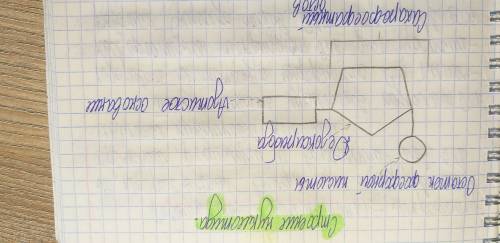 Строение нуклеотида.
Остаток фосфорной кислоты
Дезоксирибоза
Азотистое основание
Сахарофосфатный
остов